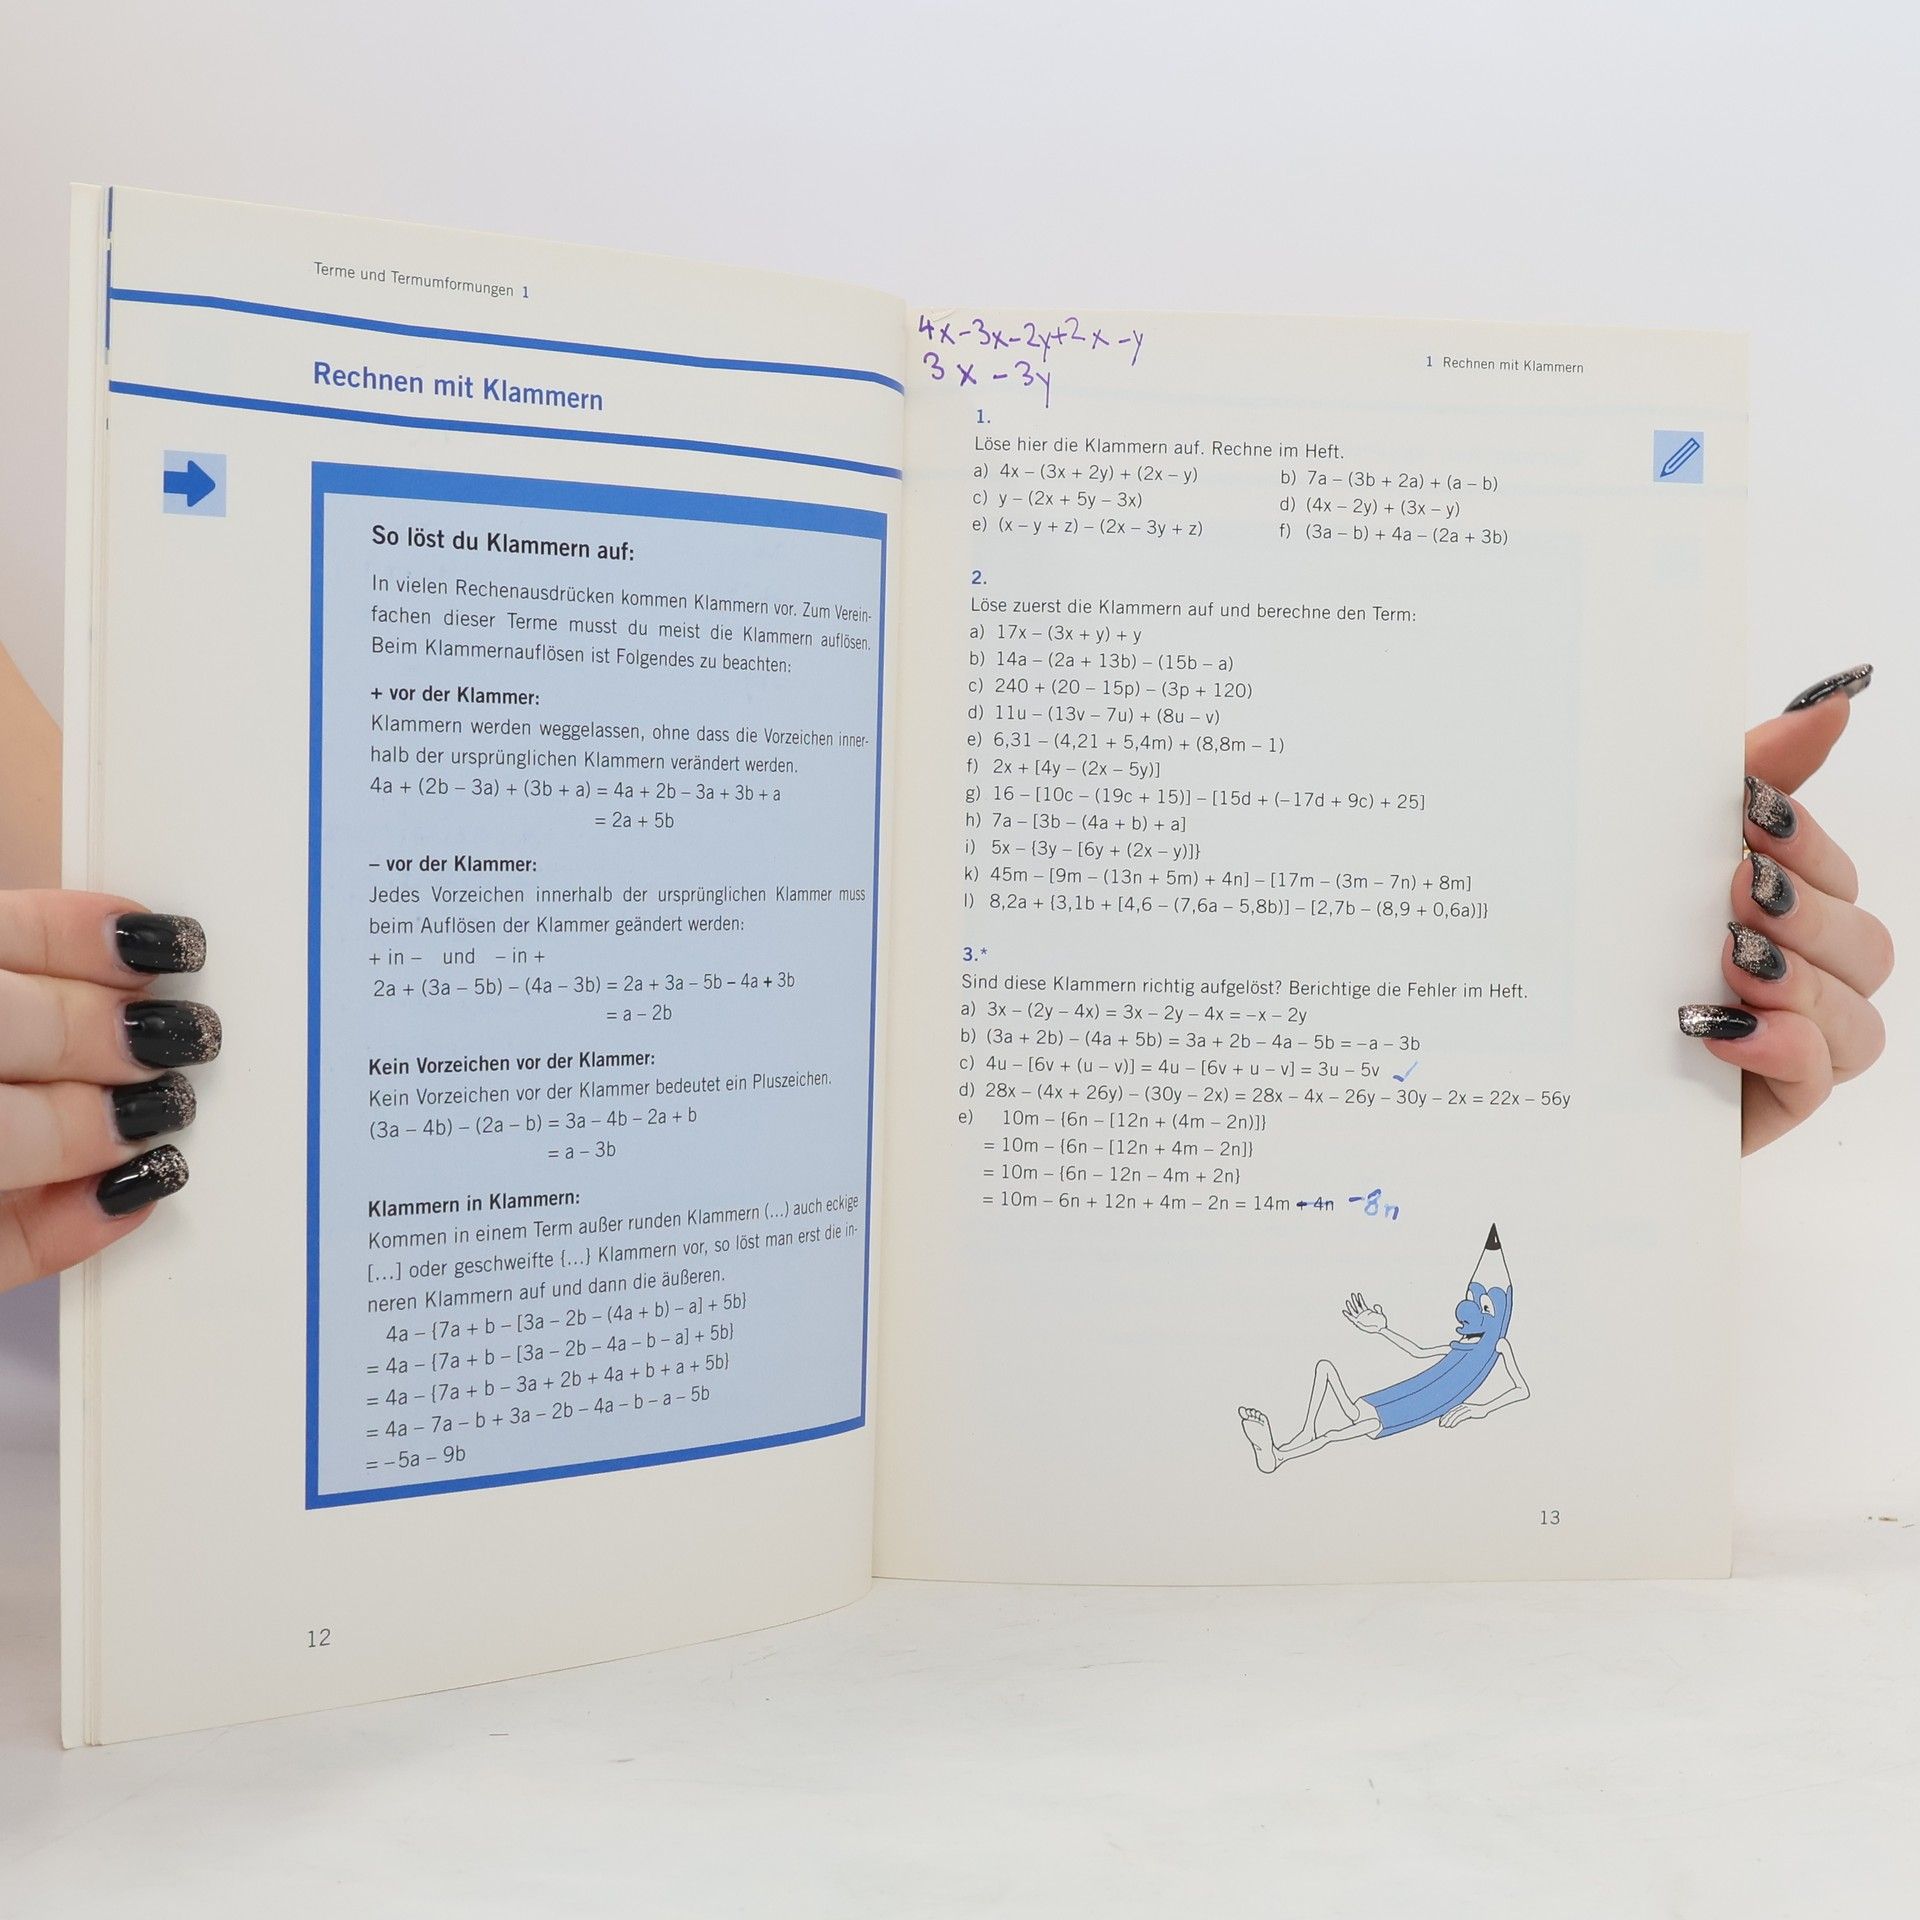 Terme und Termumformungen 1
Rechnen mit Klammern
So löst du Klammern auf:
In vielen Rechenausdrücken kommen Klammern vor. Zum Verein-
fachen dieser Terme musst du meist die Klammern auflösen.
Beim Klammernauflösen ist Folgendes zu beachten:
+ vor der Klammer:
Klammern werden weggelassen, ohne dass die Vorzeichen inner-
halb der ursprünglichen Klammern verändert werden.
4a + (2b – 3a) + (3b + a) = 4a + 2b – 3a + 3b + a
= 2a + 5b
– vor der Klammer:
Jedes Vorzeichen innerhalb der ursprünglichen Klammer muss
beim Auflösen der Klammer geändert werden:
+ in – und – in +
2a + (3a – 5b) – (4a – 3b) = 2a + 3a – 5b – 4a + 3b
= a – 2b
Kein Vorzeichen vor der Klammer:
Kein Vorzeichen vor der Klammer bedeutet ein Pluszeichen.
(3a – 4b) – (2a – b) = 3a – 4b – 2a + b
= a – 3b
Klammern in Klammern:
Kommen in einem Term außer runden Klammern (...) auch eckige
[...] oder geschweifte {...} Klammern vor, so löst man erst die in-
neren Klammern auf und dann die äußeren.
4a – {7a + b – [3a – 2b – (4a + b) – a] + 5b}
= 4a – {7a + b – [3a – 2b – 4a – b – a] + 5b}
= 4a – {7a + b – 3a + 2b + 4a + b + a + 5b}
= 4a – 7a – b + 3a – 2b – 4a – b – a – 5b
= –5a – 9b
12
4x-3x-2y+2x-y
3x-3y
1 Rechnen mit Klammern
1.
Löse hier die Klammern auf. Rechne im Heft.
a) 4x – (3x + 2y) + (2x – y) b) 7a – (3b + 2a) + (a – b)
c) y – (2x + 5y – 3x) d) (4x – 2y) + (3x – y)
e) (x – y + z) – (2x – 3y + z) f) (3a – b) + 4a – (2a + 3b)
2.
Löse zuerst die Klammern auf und berechne den Term:
a) 17x – (3x + y) + y
b) 14a – (2a + 13b) – (15b – a)
c) 240 + (20 – 15p) – (3p + 120)
d) 11u – (13v – 7u) + (8u – v)
e) 6,31 – (4,21 + 5,4m) + (8,8m – 1)
f) 2x + [4y – (2x – 5y)]
g) 16 – [10c – (19c + 15)] – [15d + (–17d + 9c) + 25]
h) 7a – [3b – (4a + b) + a]
i) 5x – {3y – [6y + (2x – y)]}
k) 45m – [9m – (13n + 5m) + 4n] – [17m – (3m – 7n) + 8m]
l) 8,2a + {3,1b + [4,6 – (7,6a – 5,8b)] – [2,7b – (8,9 + 0,6a)]}
3.*
Sind diese Klammern richtig aufgelöst? Berichtige die Fehler im Heft.
a) 3x – (2y – 4x) = 3x – 2y – 4x = –x – 2y
b) (3a + 2b) – (4a + 5b) = 3a + 2b – 4a – 5b = –a – 3b
c) 4u – [6v + (u – v)] = 4u – [6v + u – v] = 3u – 5v ✓
d) 28x – (4x + 26y) – (30y – 2x) = 28x – 4x – 26y – 30y – 2x = 22x – 56y
e) 10m – {6n – [12n + (4m – 2n)]}
= 10m – {6n – [12n + 4m – 2n]}
= 10m – {6n – 12n – 4m + 2n}
= 10m – 6n + 12n + 4m – 2n = 14m + 4n -8n
13